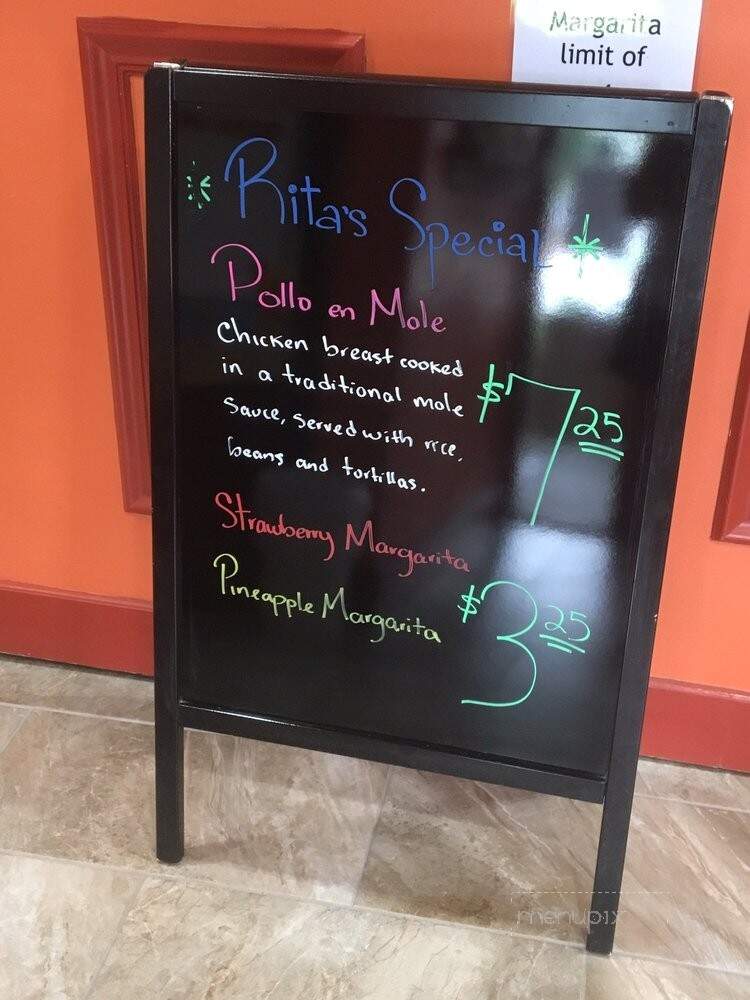 Margarita
limit of
Rita's Special
Pollo en Mole
Chicken breast cooked
in a traditional mole
sauce, served with rice,
beans and tortillas.
$7.25
Strawberry Margarita
Pineapple Margarita
$3.25
menupix